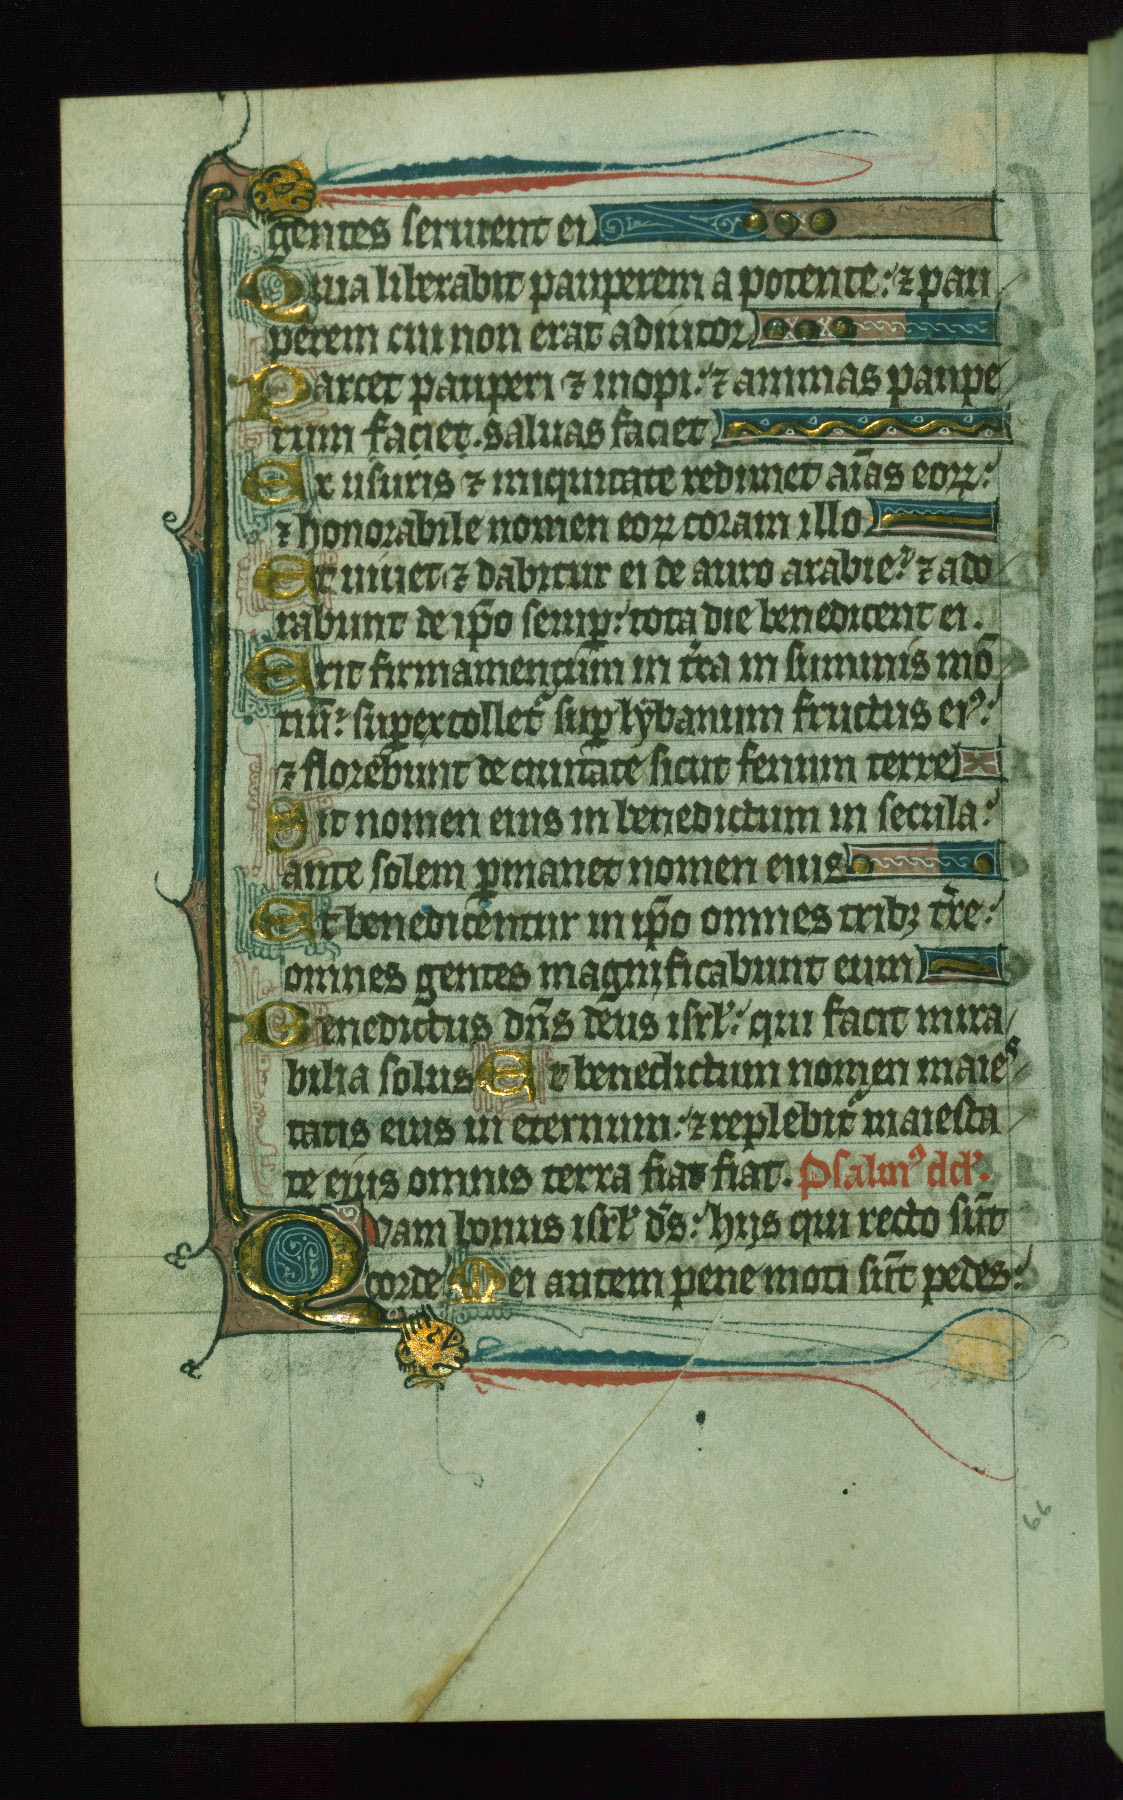 gentes seruient ei
Quia liberabit pauperem a potente: ⁊ pau
perem cui non erat adiutor
Parcet pauperi ⁊ inopi: ⁊ animas paupe
rum faciet. saluas faciet
Ex usuris ⁊ iniquitate redimet aīas eoꝝ:
⁊ honorabile nomen eoꝝ coram illo
Et uiuet ⁊ dabitur ei de auro arabie: ⁊ ado
rabunt de ip̄o semꝑ: tota die benedicent ei.
Erit firmamentum in t̄ra in summis mō
tiū: superextolletᷣ suꝑ lybanum fructus eiꝰ:
⁊ florebunt de ciuitate sicut fenum terre
Sit nomen eius in benedictum in secula:
ante solem ꝑmanet nomen eius
Et benedicentur in ip̄o omnes tribꝫ t̄re:
omnes gentes magnificabunt eum
Benedictus dn̄s deus isrł: qui facit mira
bilia solus Et benedictum nomen maies
tatis eius in eternum: ⁊ replebitᷣ maiesta
te eius omnis terra fiat fiat. Psalmꝰ dd̄.
Quam bonus isrł d̄s: hijs qui recto sūt
corde Mei autem pene moti sūt pedes:
66